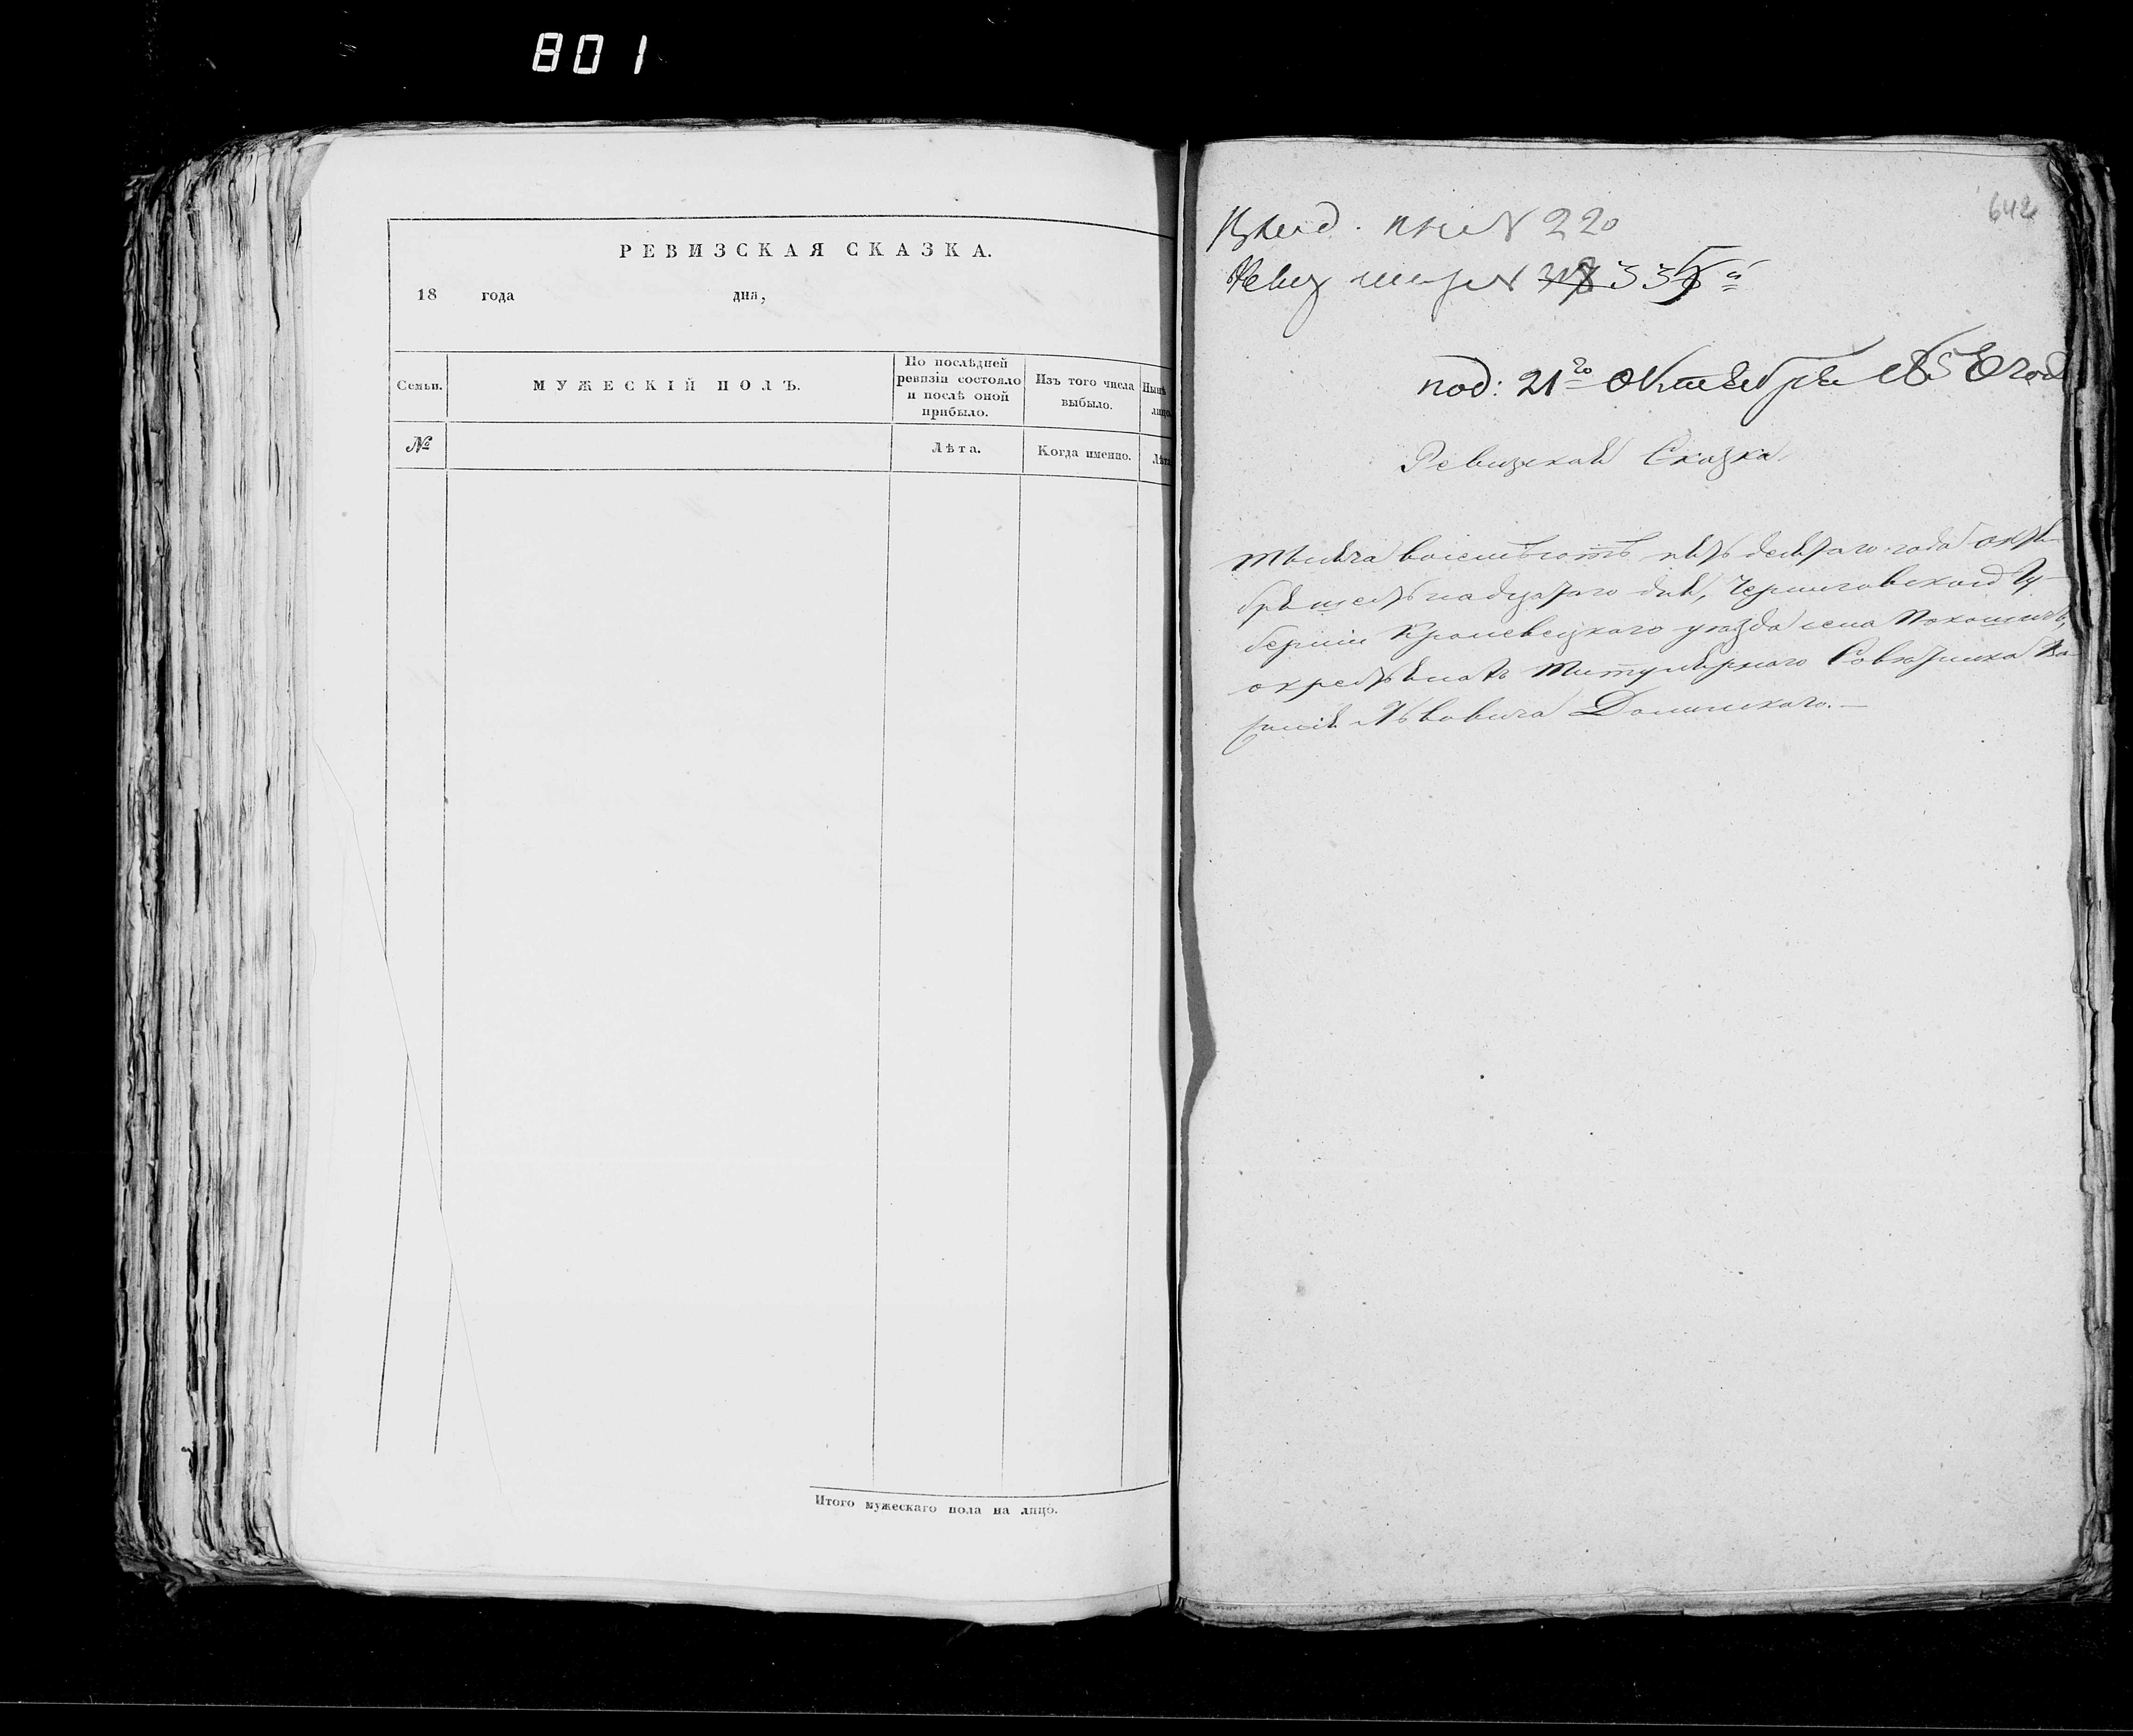 801
РЕВИЗСКАЯ СКАЗКА.
18 года дня,
Семьи.
МУЖЕСКІЙ ПОЛЪ.
По послѣдней ревизіи состояло и послѣ оной прибыло.
Изъ того числа выбыло.
Нынѣ
№
Лѣта.
Когда именно.
Лѣта
Итого мужескаго пола на лицо.
642
№ 220
Ревиз № 335
под: 21го Октября 1850 года
Ревизская Сказка
Тысяча восемьсотъ пятьдесятаго года октя-
бря шестьнадцатаго дня, Черниговской Гу-
берніи Кролевецкаго уѣзда села Покошичъ,
о крестьянахъ Титулярнаго Совѣтника
Львовича Долинскаго.—